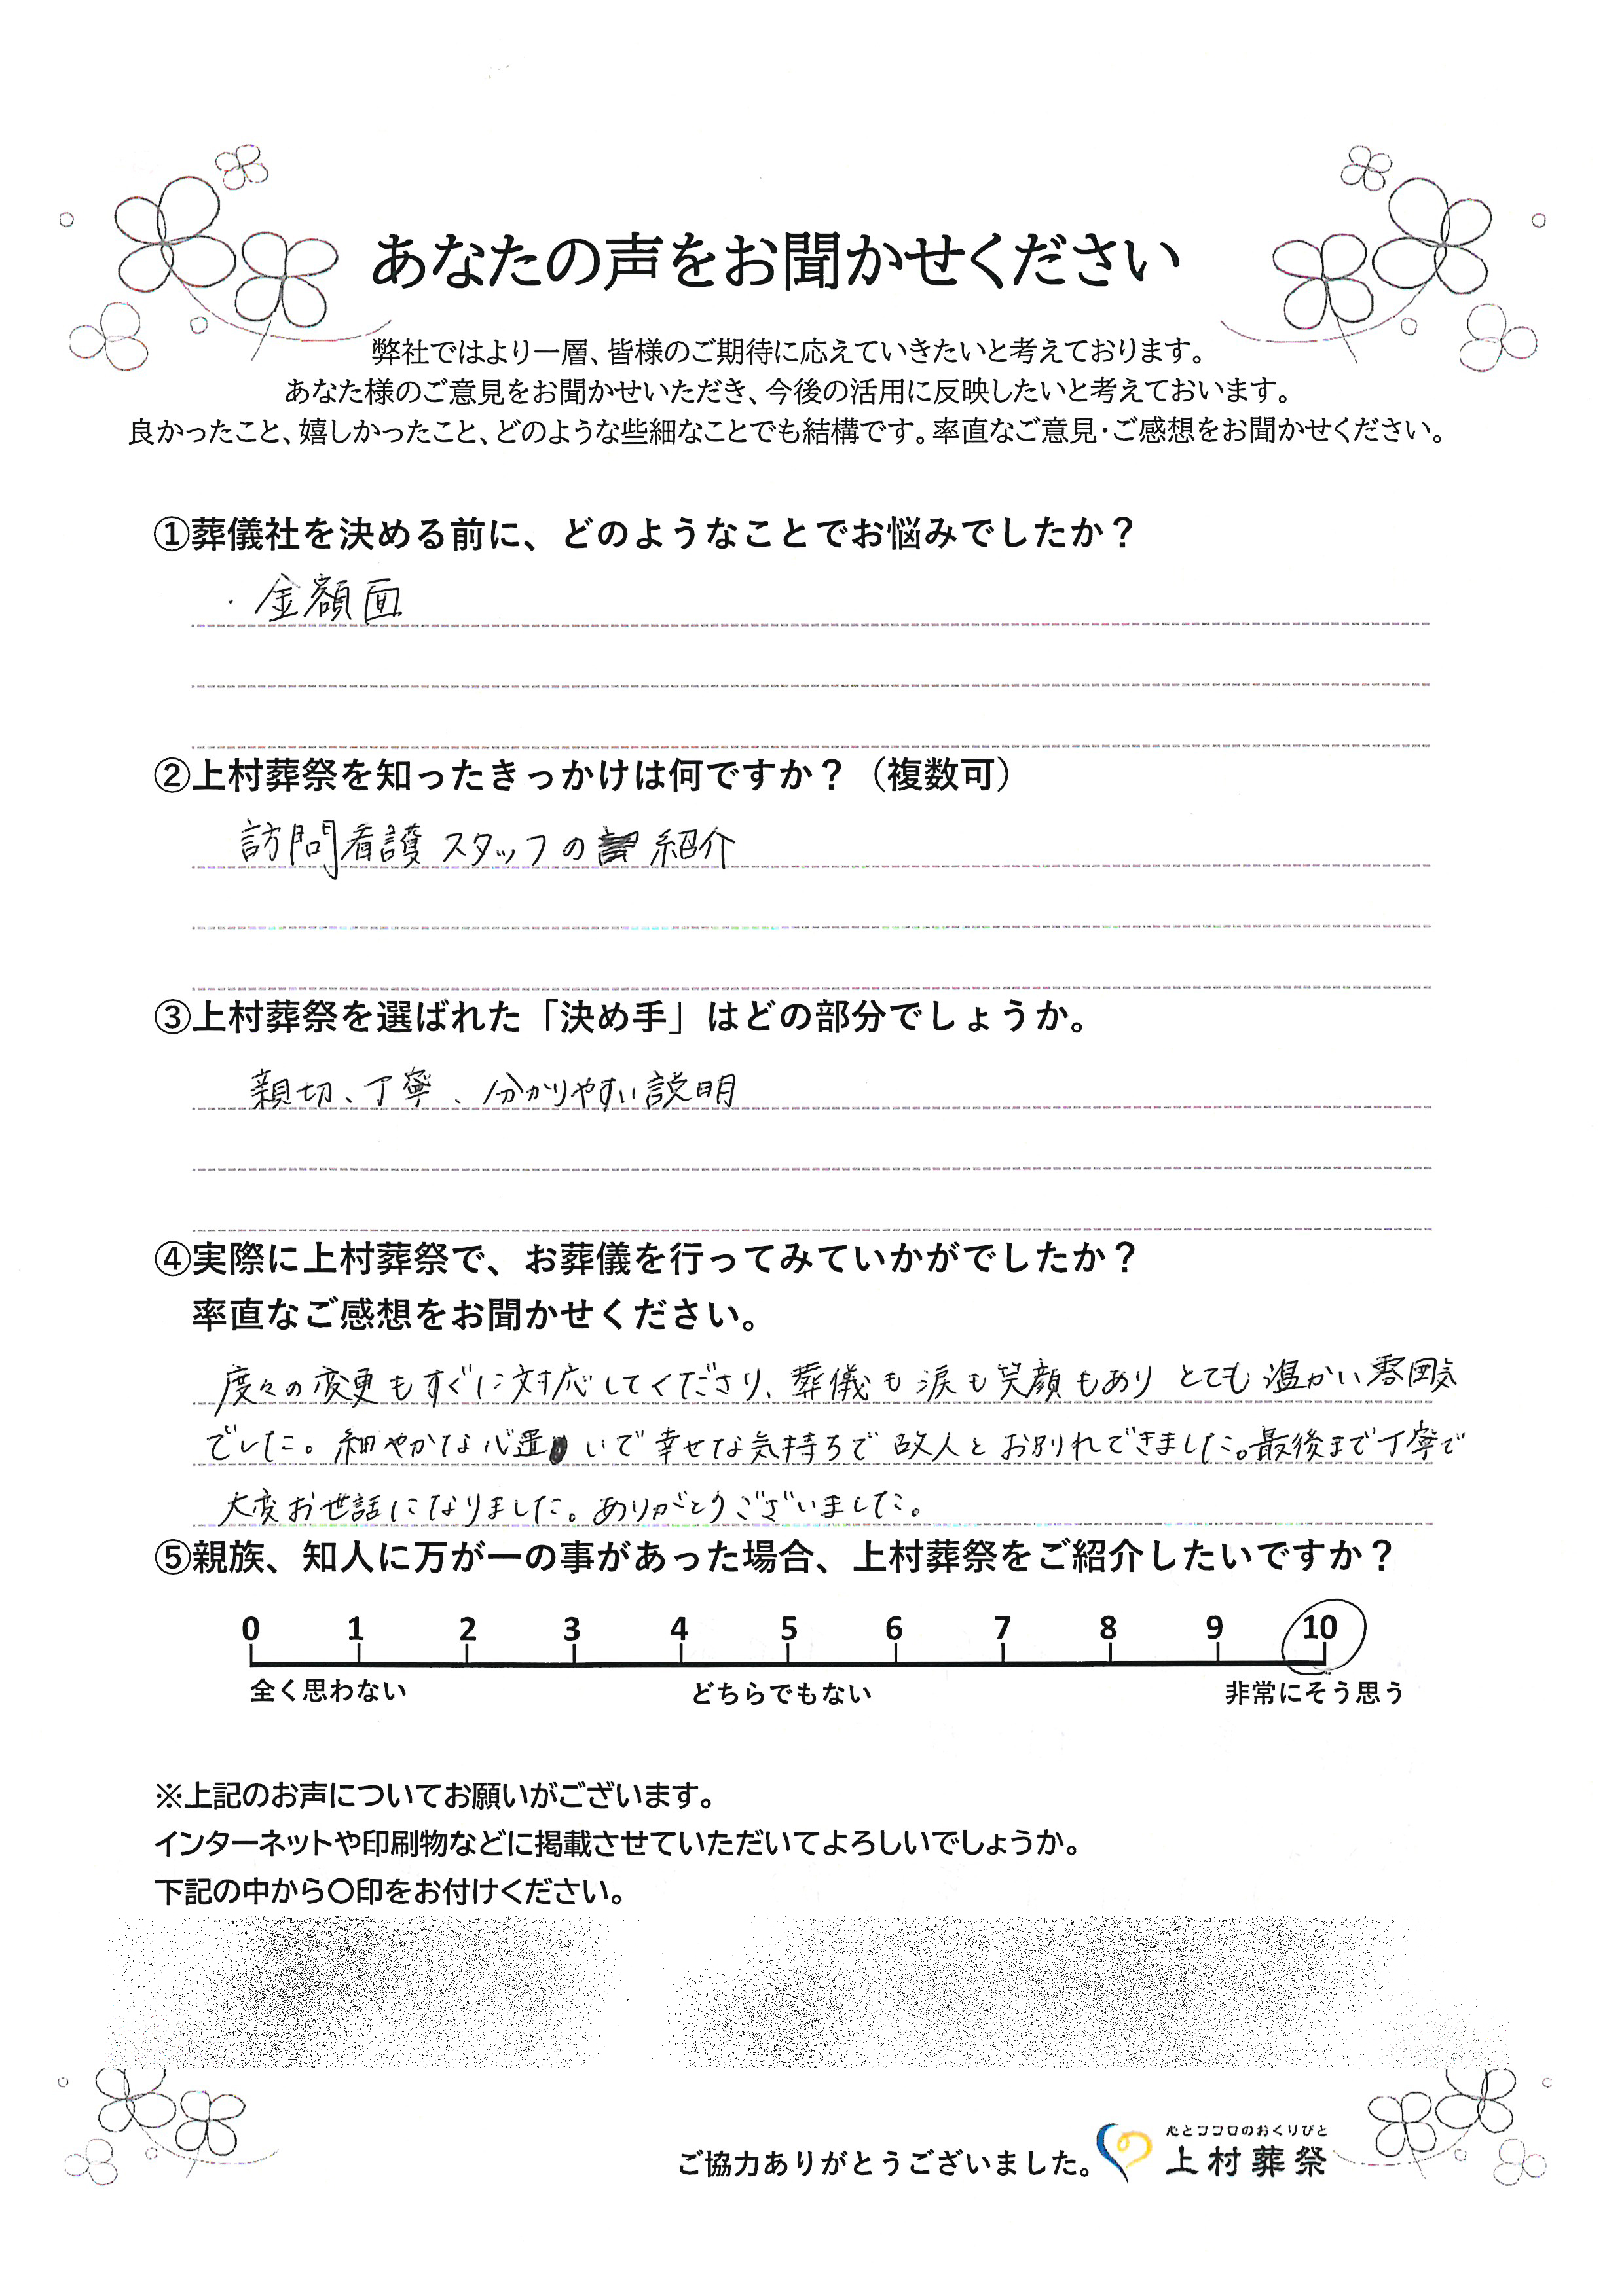 あなたの声をお聞かせください
弊社ではより一層、皆様のご期待に応えていきたいと考えております。
あなた様のご意見をお聞かせいただき、今後の活用に反映したいと考えておいます。
良かったこと、嬉しかったこと、どのような些細なことでも結構です。率直なご意見・ご感想をお聞かせください。
①葬儀社を決める前に、どのようなことでお悩みでしたか？
・金額面
②上村葬祭を知ったきっかけは何ですか？（複数可）
訪問看護スタッフの紹介
③上村葬祭を選ばれた「決め手」はどの部分でしょうか。
親切、丁寧、分かりやすい説明
④実際に上村葬祭で、お葬儀を行ってみていかがでしたか？
率直なご感想をお聞かせください。
度々の変更もすぐに対応してくださり、葬儀も涙も笑顔もありとても温かい雰囲気
でした。細やかな心遣いで幸せな気持ちで故人とお別れできました。最後まで丁寧で
大変お世話になりました。ありがとうございました。
⑤親族、知人に万が一の事があった場合、上村葬祭をご紹介したいですか？
0 1 2 3 4 5 6 7 8 9 10
全く思わない どちらでもない 非常にそう思う
※上記のお声についてお願いがございます。
インターネットや印刷物などに掲載させていただいてよろしいでしょうか。
下記の中から〇印をお付けください。
心とココロのおくりびと
ご協力ありがとうございました。 上村葬祭